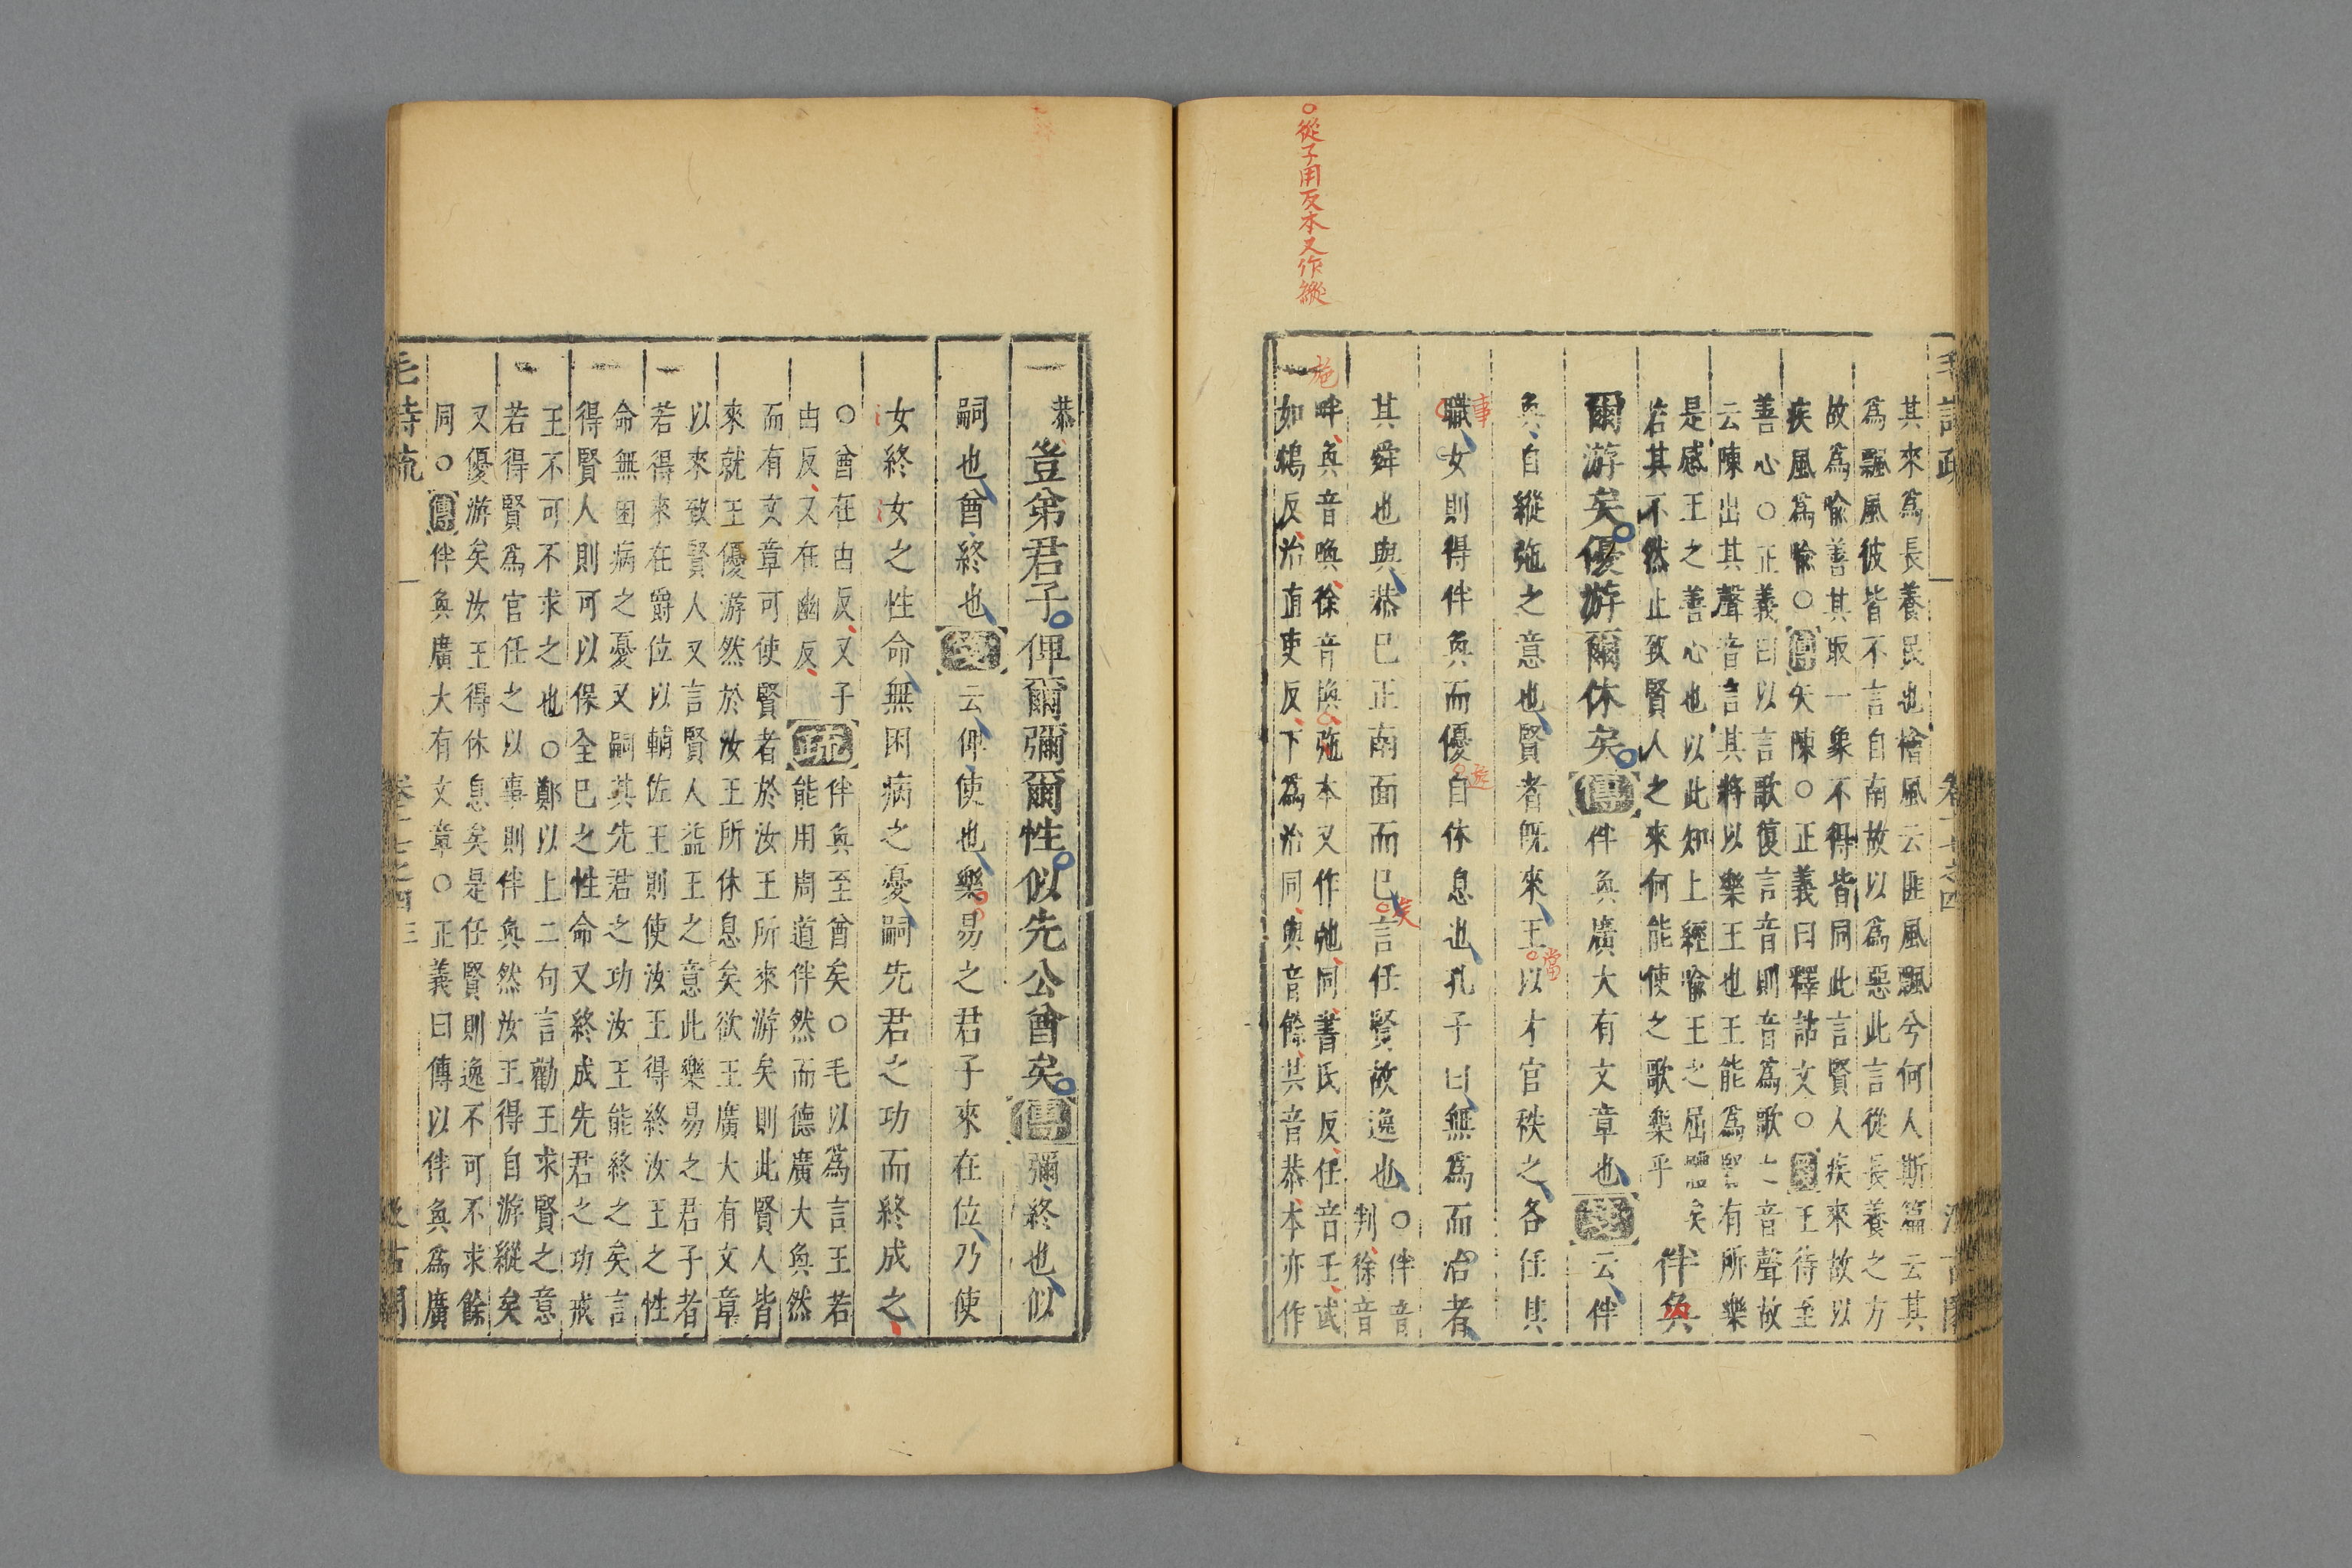 毛詩疏 卷十七之四 汲古閣
其來為長養民也檜風云匪風飄兮何人斯篇云其
為飄風彼皆不言自南故以為惡此言從長養之方
故為喻善其取一象不得皆同此言賢人疾來故以
疾風為喻○傳矢陳○正義曰釋詁文○箋王待至
善心○正義曰以言歌復言音則音為歌之音聲故
云陳出其聲音言其將以樂王也王能為賢有所樂
是感王之善心也以此知上經喻王之屈體矣
若其不然止致賢人之來何能使之歌樂乎
伴奐
爾游矣優游爾休矣傳伴奐廣大有文章也箋云伴
奐自縱弛之意也賢者旣來王以才官秩之各任其
當
職女則得伴奐而優自休息也孔子曰無為而治者
事
遊
其舜也與恭巳正南面而巳言任賢故逸也
矣
○伴音
判徐音
畔奐音喚徐音換弛本又作㢮同書氏反任音壬武
施
如鴆反治直吏反下為治同與音餘共音恭本亦作
○從子用反本又作縱
恭
豈弟君子俾爾彌爾性似先公酋矣傳彌終也似
嗣也酋終也箋云俾使也樂易之君子來在位乃使
女終女之性命無困病之憂嗣先君之功而終成之
○酋在由反又子
由反又在幽反
疏
伴奐至酋矣○毛以為言王若
能用周道伴然而德廣大奐然
而有文章可使賢者於汝王所來游矣則此賢人皆
來就王優游然於汝王所休息矣欲王廣大有文章
以來致賢人又言賢人益王之意此樂易之君子者
若得來在爵位以輔佐王則使汝王得終汝王之性
命無困病之憂又嗣其先君之功汝王能終之矣言
得賢人則可以保全巳之性命又終成先君之功戒
王不可不求之也○鄭以上二句言勸王求賢之意
若得賢為官任之以事則伴奐然汝王得自游縱矣
又優游矣汝王得休息矣是任賢則逸不可不求餘
同○傳伴奐廣大有文章○正義曰傳以伴奐為廣
毛詩疏 卷十七之四 三 汲古閣